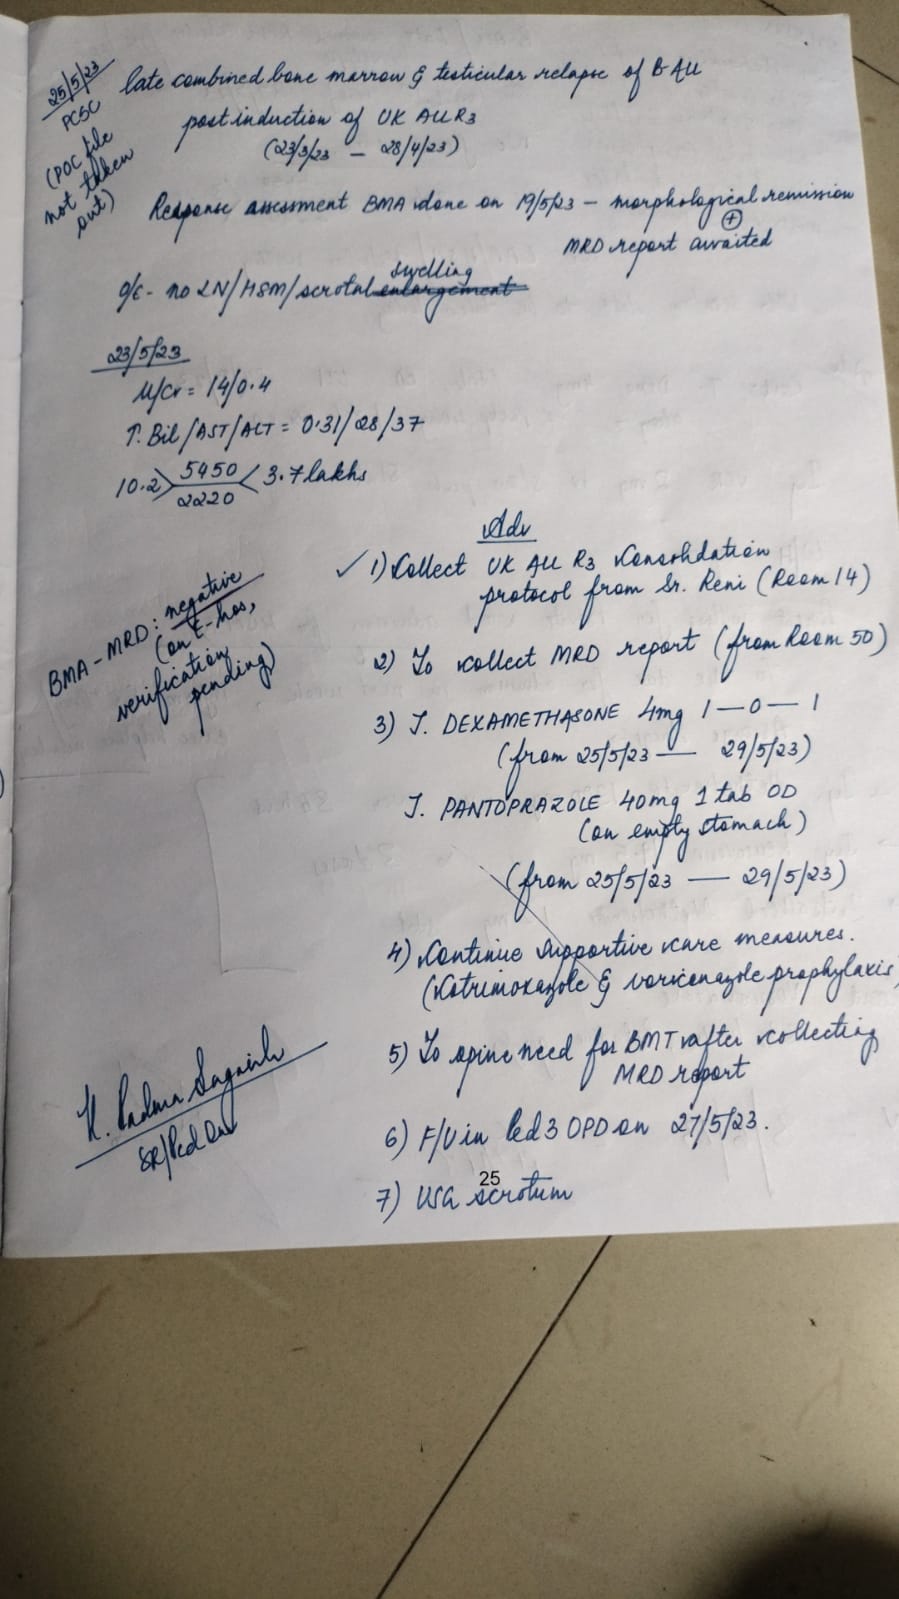 25/5/23
PCSC
(POC file
not taken
out)
late combined bone marrow & testicular relapse of B ALL
post induction of UK ALL R3
(23/3/23 — 28/4/23)
Response assessment BMA done on 19/5/23 – morphological remission
⊕
MRD report awaited
O/E - no LN/HSM/scrotal enlargement swelling
23/5/23
U/Cr = 14/0.4
T. Bil/AST/ALT = 0.31/28/37
10.2 > 5450 / 2220 < 3.7 lakhs
BMA-MRD: negative
(on E-hos,
verification
pending)
Adv
✓ 1) Collect UK ALL R3 Consolidation
protocol from Sr. Reni (Room 14)
2) To collect MRD report (from Room 50)
3) T. DEXAMETHASONE 4mg 1—0—1
(from 25/5/23 — 29/5/23)
T. PANTOPRAZOLE 40mg 1 tab OD
(on empty stomach)
(from 25/5/23 — 29/5/23)
4) Continue supportive care measures.
(Cotrimoxazole & voriconazole prophylaxis
5) To opine need for BMT after collecting
MRD report
6) F/U in Ped 3 OPD on 27/5/23.
25
7) USG scrotum
SR/Ped Onc